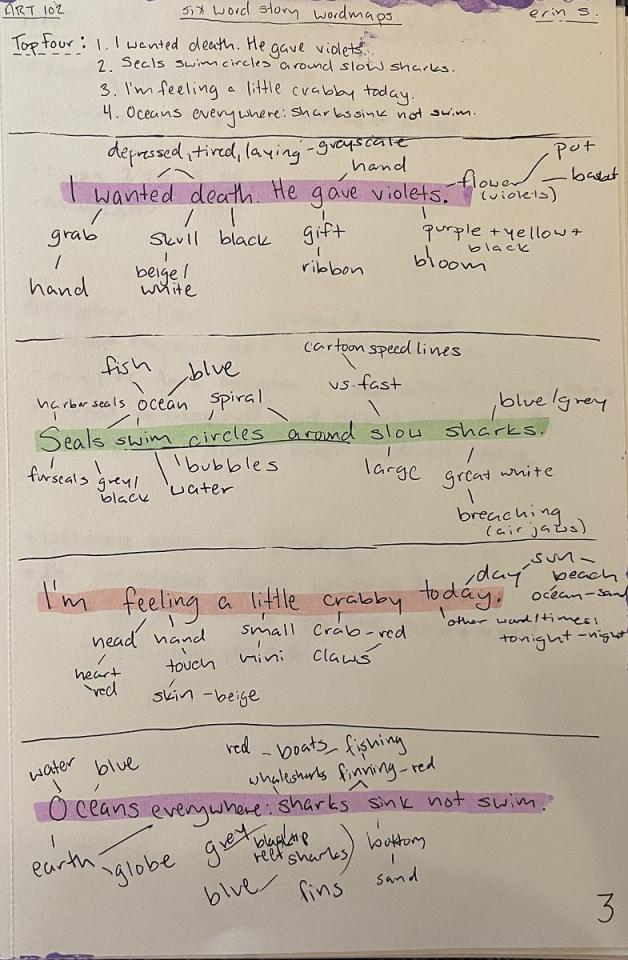 ART 102 six word story wordmaps erin s.
Top Four: 1. I wanted death. He gave violets.
2. Seals swim circles around slow sharks.
3. I'm feeling a little crabby today.
4. Oceans everywhere: sharks sink not swim.
depressed, tired, laying - greyscale
hand
pot
I wanted death. He gave violets. - flower basket
(violets)
grab skull black gift purple + yellow +
black
hand beige/ ribbon bloom
white
cartoon speed lines
fish blue
vs. fast
harbor seals ocean spiral blue/grey
Seals swim circles around slow sharks.
fur seals grey/ bubbles large great white
black water
breaching
(air jaws)
day sun -
beach
I'm feeling a little crabby today. ocean - sand
head hand small crab - red other word/times:
tonight - night
heart touch mini claws
red skin - beige
red - boats - fishing
water blue
whalesharks finning - red
Oceans everywhere: sharks sink not swim.
earth globe grey blacktip bottom
reef sharks
blue fins sand
3